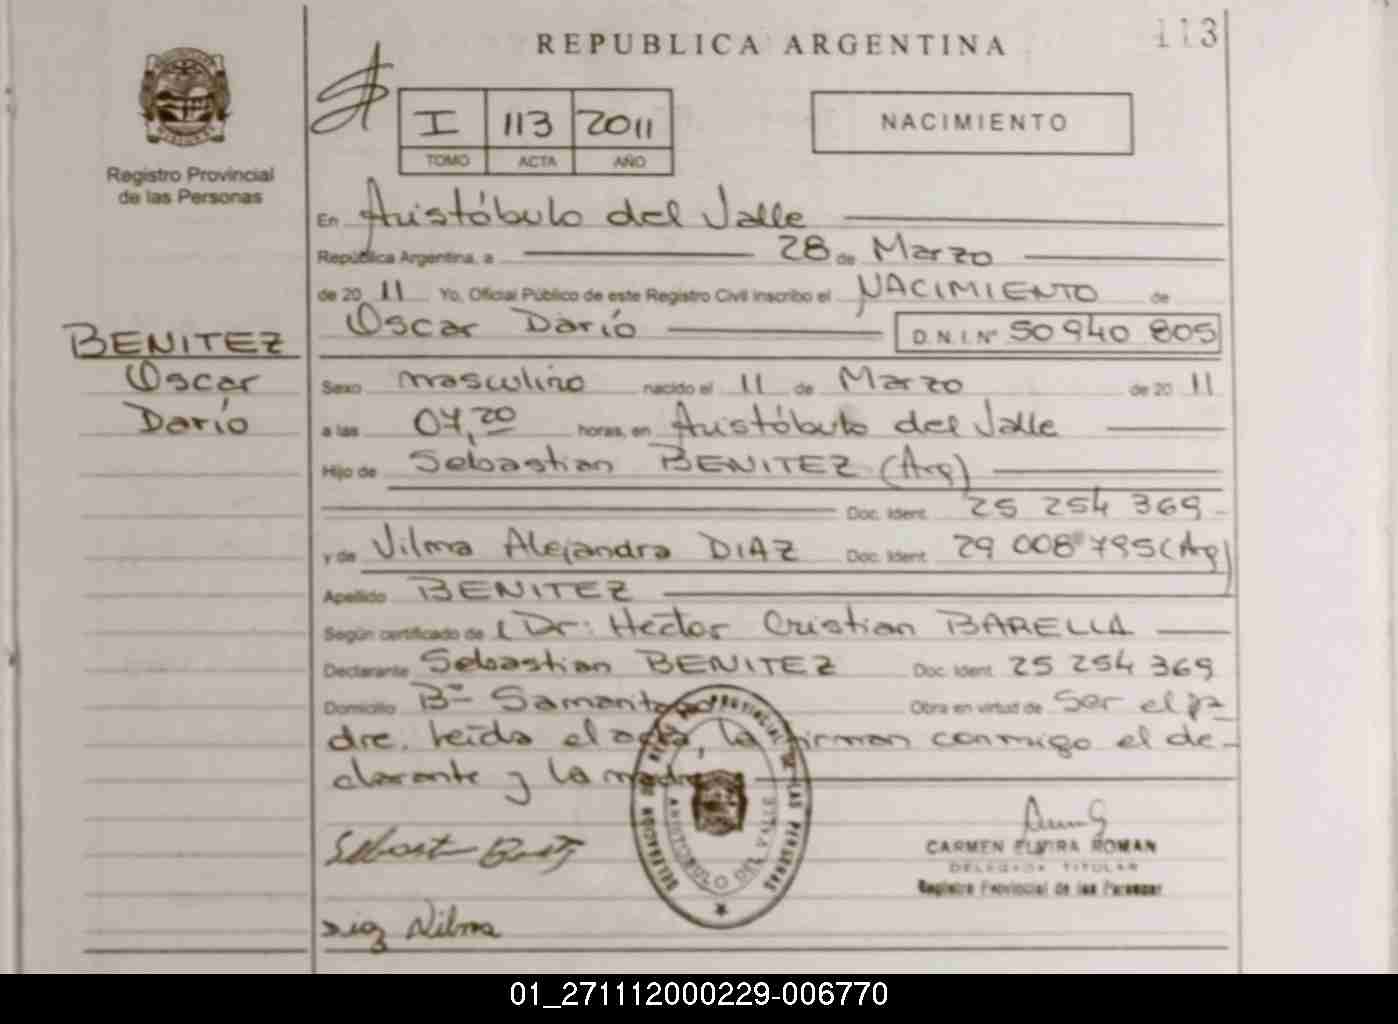 REPUBLICA ARGENTINA
113
I 113 2011
TOMO ACTA AÑO
NACIMIENTO
Registro Provincial
de las Personas
En Aristóbulo del Valle
República Argentina, a 28 de Marzo
de 20 11 Yo, Oficial Público de este Registro Civil inscribo el NACIMIENTO de
Oscar Darío D.N.I. Nº 50 940 805
BENITEZ
Oscar
Darío
Sexo masculino nacido el 11 de Marzo de 20 11
a las 07,20 horas, en Aristóbulo del Valle
Hijo de Sebastian BENITEZ (Arg)
Doc. Ident. 25 254 369
y de Vilma Alejandra DIAZ Doc. Ident. 29 008 795 (Arg)
Apellido BENITEZ
Según certificado de Dr: Hector Cristian BARELLA
Declarante Sebastian BENITEZ Doc. Ident. 25 254 369
Domicilio Bº Samaritano Obra en virtud de ser el pa-
dre. leída el acta, la firman conmigo el de-
clarante y la madre
DELEGACION DEL REGISTRO PROVINCIAL DE LAS PERSONAS
ARISTOBULO DEL VALLE
CARMEN ELVIRA ROMAN
DELEGADA TITULAR
Registro Provincial de las Personas
Diaz Vilma
01_271112000229-006770